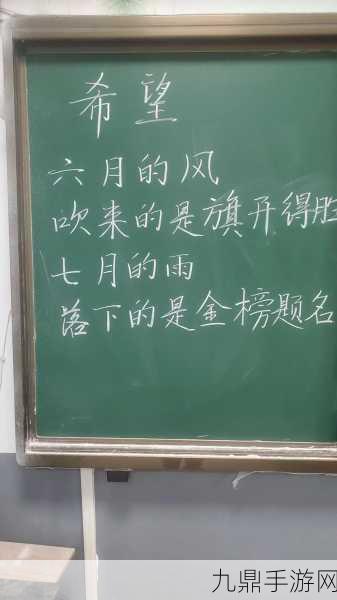 希望
六月的风
吹来的是旗开得胜
七月的雨
落下的是金榜题名
九鼎手游网